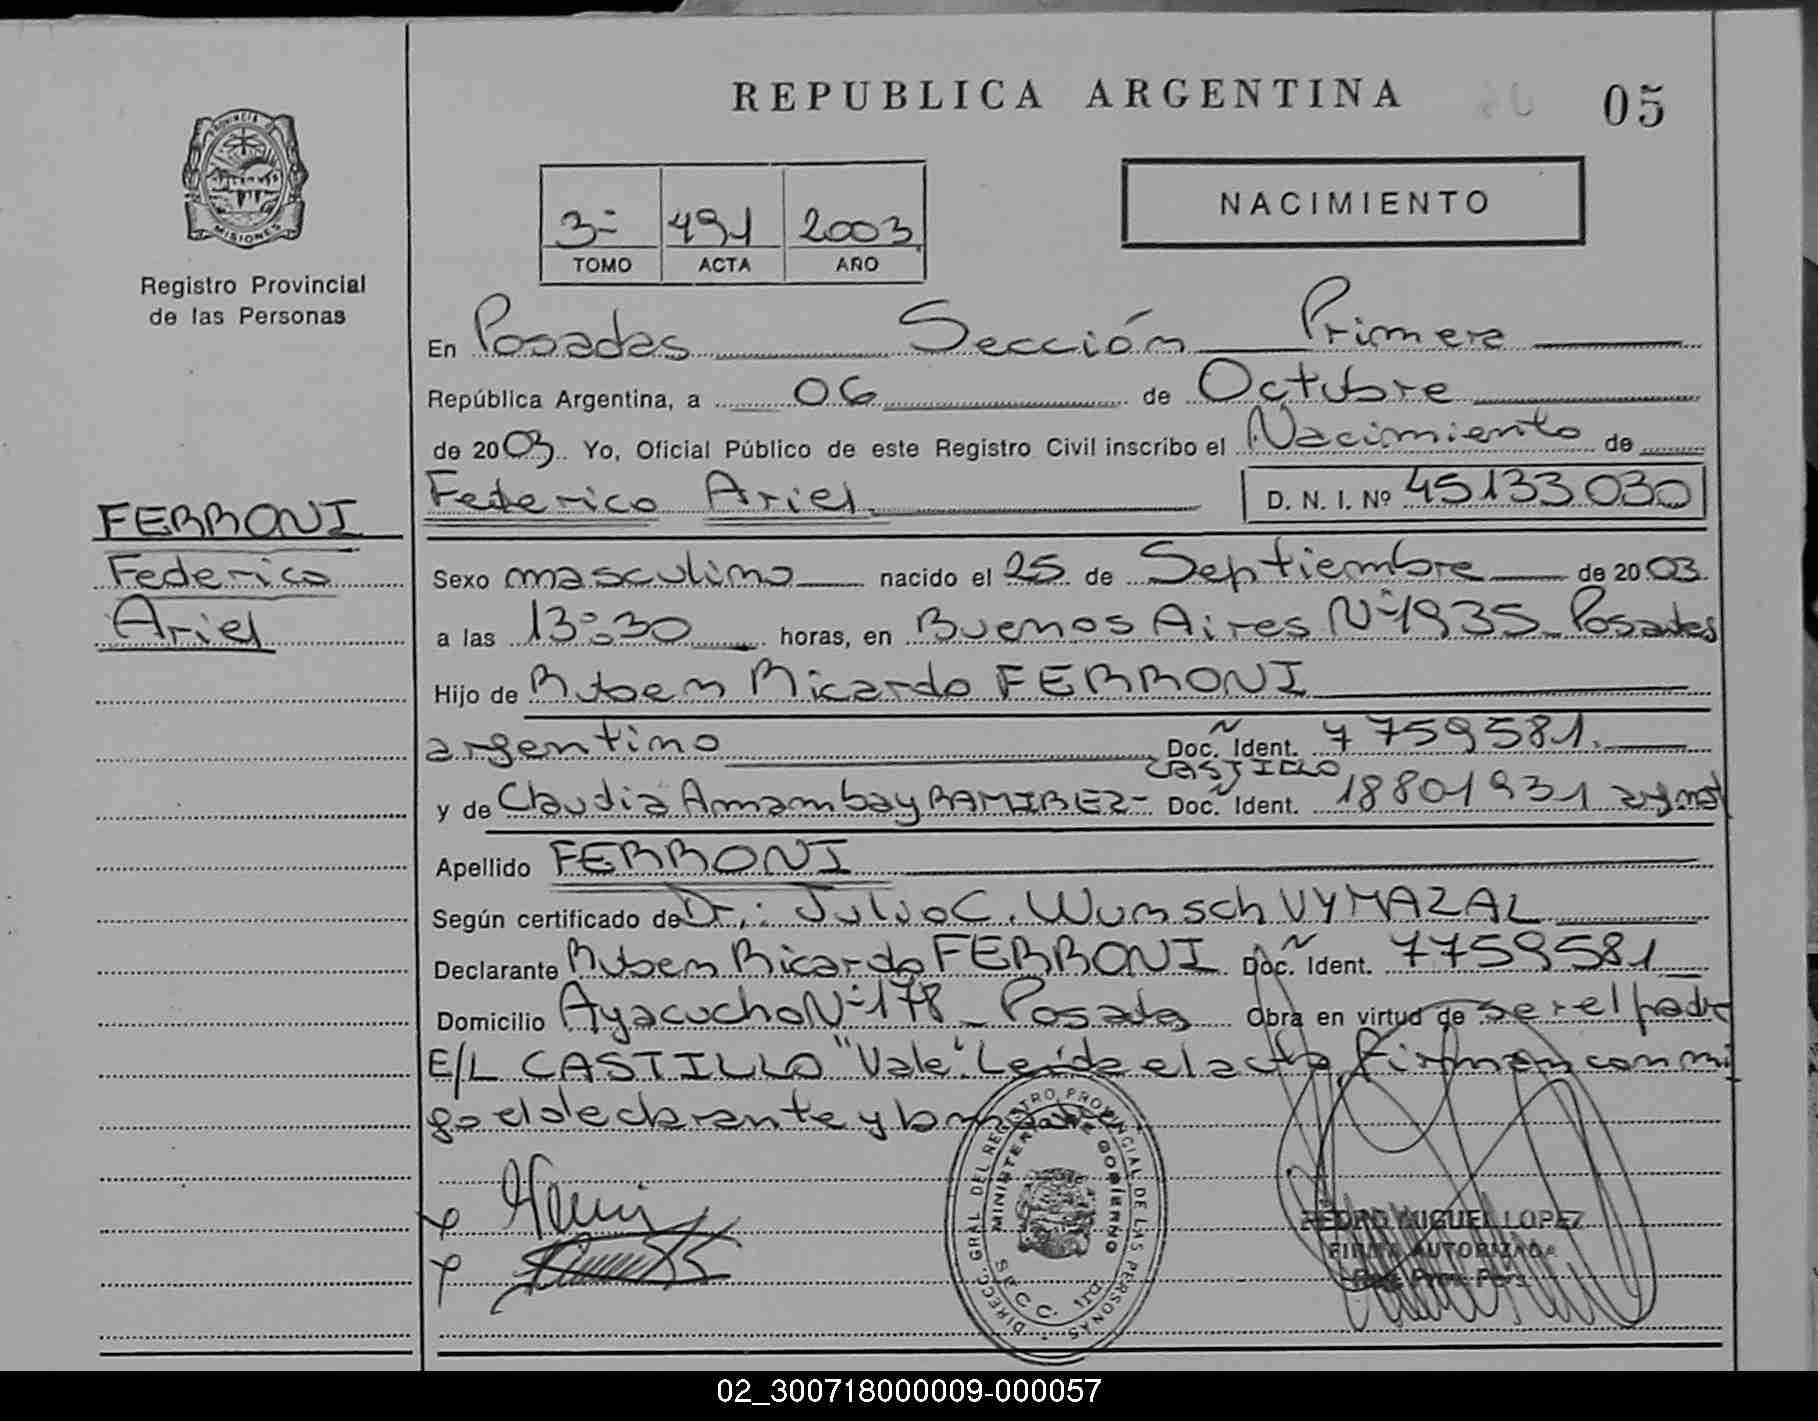 REPUBLICA ARGENTINA
05
PROVINCIA DE
MISIONES
Registro Provincial
de las Personas
3º 491 2003
TOMO ACTA AÑO
NACIMIENTO
En Posadas Sección Primera
República Argentina, a 06 de Octubre
de 2003. Yo, Oficial Público de este Registro Civil inscribo el Nacimiento de
Federico Ariel D. N. I. Nº 45133030
FERRONI
Federico
Ariel
Sexo masculino nacido el 25 de Septiembre de 2003.
a las 13:30 horas, en Buenos Aires Nº 1935 Posadas
Hijo de Ruben Ricardo FERRONI
argentino Doc. Ident. 7759581.
CASTILLO
y de Claudia Amambay RAMIREZ- Doc. Ident. 18801931
Apellido FERRONI
Según certificado de Dr.: Julio C. Wunsch VYMAZAL
Declarante Ruben Ricardo FERRONI Doc. Ident. 7759581
Domicilio Ayacucho Nº 178 - Posadas Obra en virtud de ser el padre
E/L CASTILLO "Vale". Leída el acta, firman conmi
go el declarante y la madre.
DIRECC. GRAL. DEL REGISTRO PROVINCIAL DE LAS PERSONAS
MINISTERIO DE GOBIERNO
SECC. 1ra.
PEDRO MIGUEL LOPEZ
FIRMA AUTORIZADA
Reg. Prov. Pers.
02_300718000009-000057